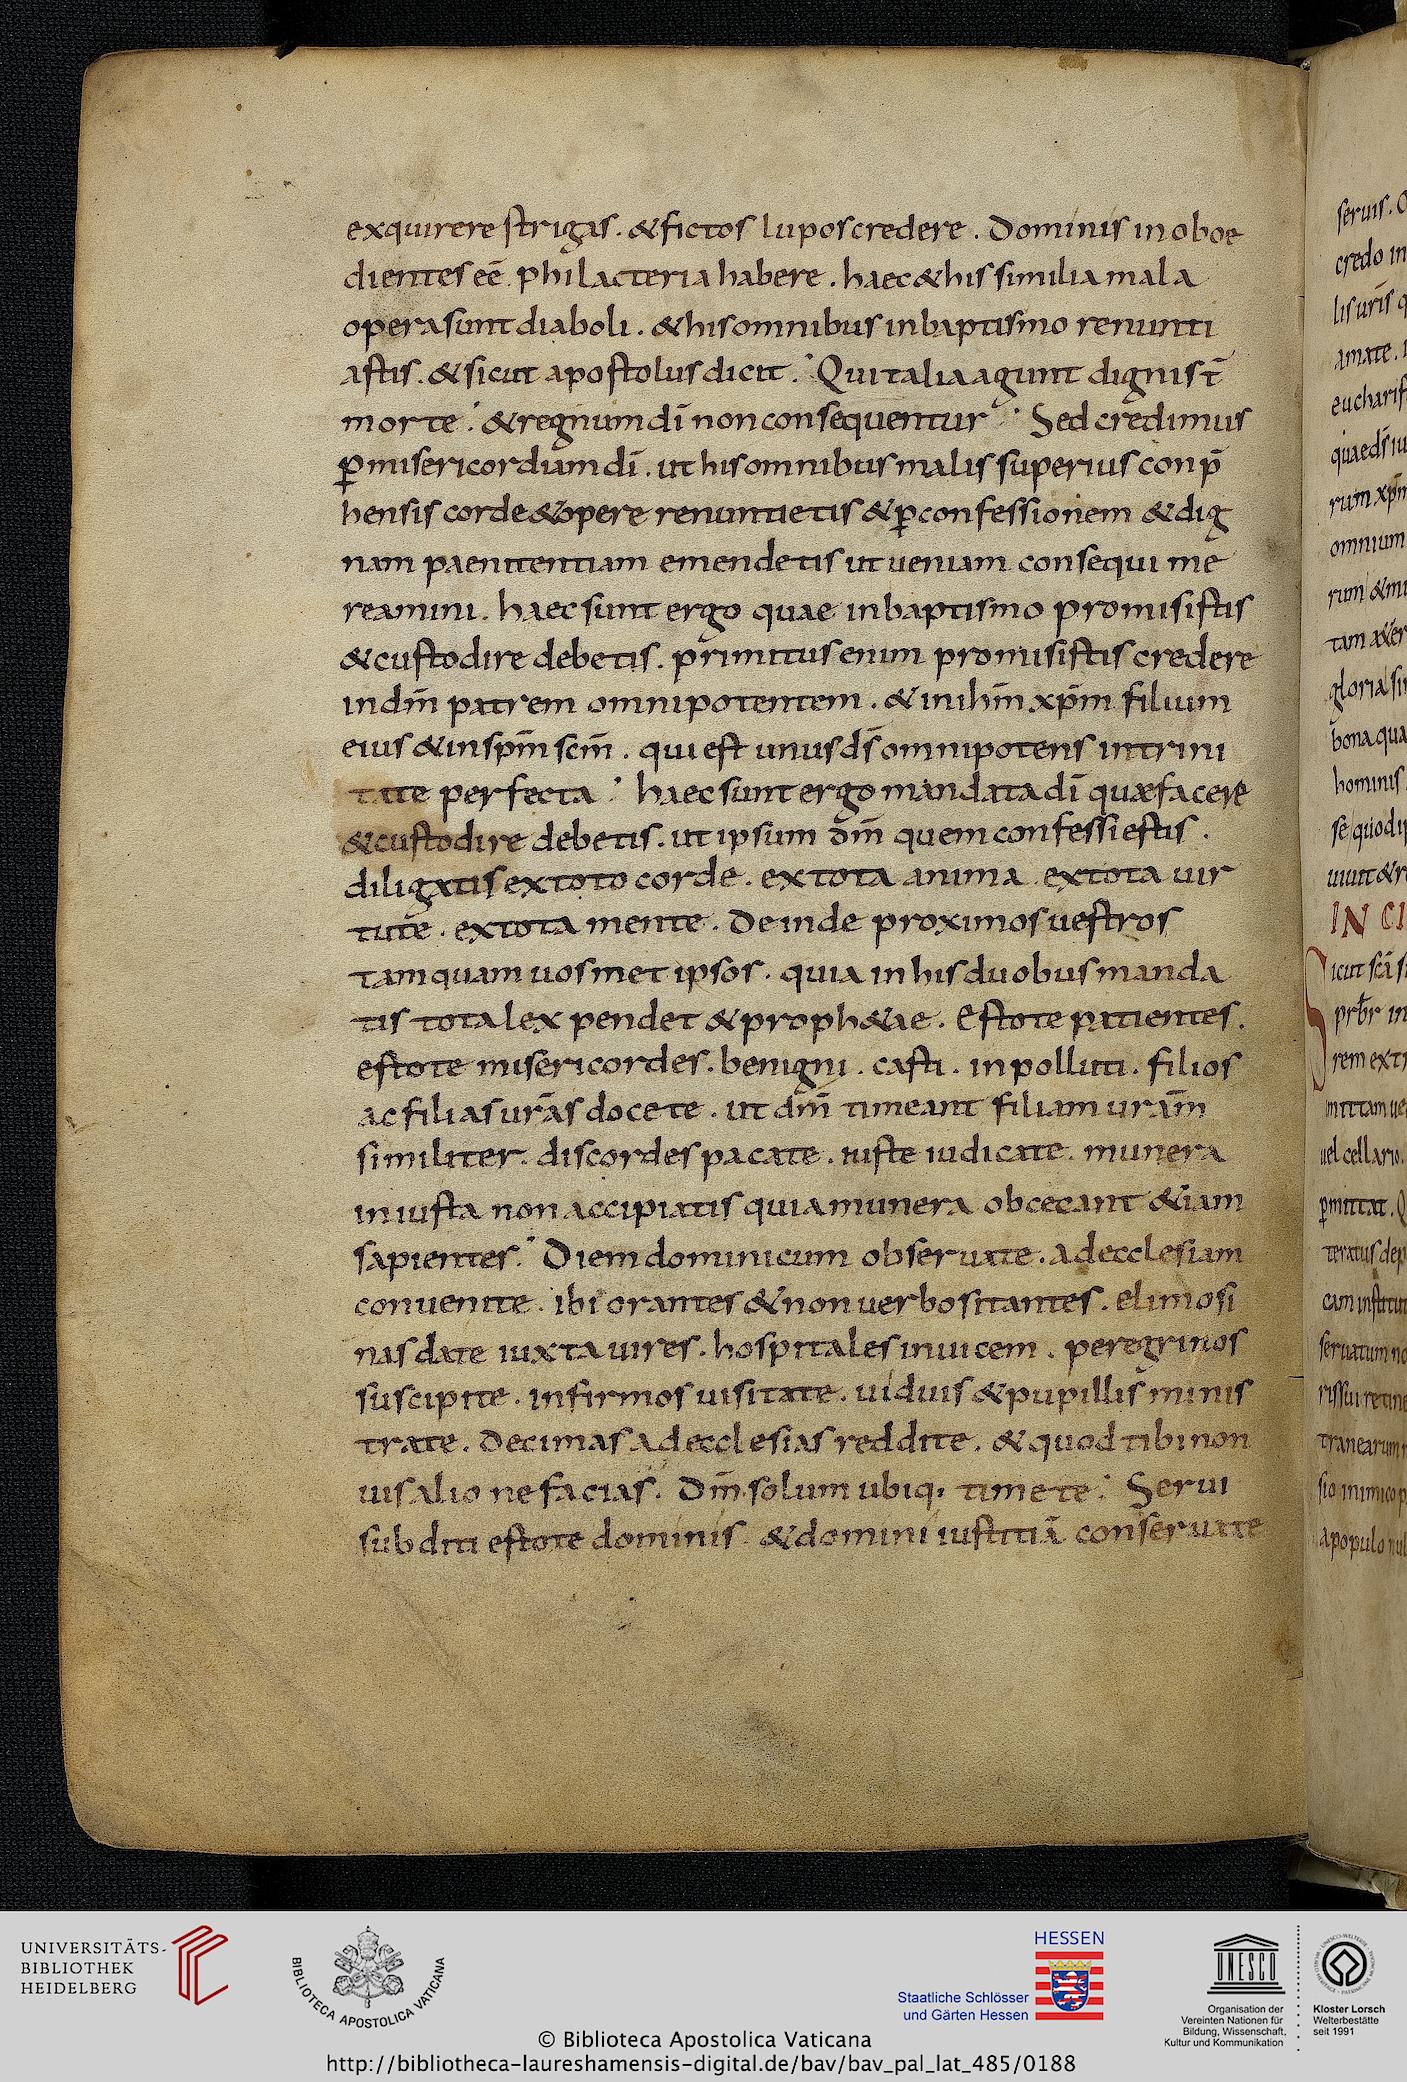 exquirere strigas. & fictos lupos credere. Dominis inoboe
dientes eē. philacteria habere. haec & his similia mala
opera sunt diaboli. & his omnibus in baptismo renunti
astis. & sicut apostolus dicit. Qui talia agunt digni s̄t
morte. & regnum dī non consequentur. Sed credimus
ꝑ misericordiam dī. ut his omnibus malis superius conp̄
hensis corde & opere renuntietis & ꝑ confessionem & dig
nam paenitentiam emendetis ut ueniam consequi me
reamini. haec sunt ergo quae in baptismo promisistis
& custodire debetis. primitus enim promisistis credere
in dm̄ patrem omnipotentem. & in ihm̄ xpm̄ filium
eius & in spm̄ scm̄. qui est unus ds̄ omnipotens in trini
tate perfecta. haec sunt ergo mandata dī quae facere
& custodire debetis. ut ipsum dm̄ quem confessi estis.
diligatis ex toto corde. ex tota anima. ex tota uir
tute. ex tota mente. Deinde proximos uestros
tamquam uosmet ipsos. quia in his duobus manda
tis tota lex pendet & proph&ae. Estote patientes.
estote misericordes. benigni. casti. inpolluti. filios
ac filias urās docete. ut dm̄ timeant filiam urām
similiter. discordes pacate. iuste iudicate. munera
iniusta non accipiatis quia munera obcecant &iam
sapientes. Diem dominicum obseruate. ad ecclesiam
conuenite. ibi orantes & non uerbositantes. elimosi
nas date iuxta uires. hospitales inuicem. peregrinos
suscipite. infirmos uisitate. uiduis & pupillis minis
trate. Decimas ad ecclesias reddite. & quod tibi non
uis alio ne facias. Dm̄ solum ubiq; timete. Serui
subditi estote dominis. & domini iustitiā conseruate
seruis.
credo in
amate.
omnium
hominis
IN CI
UNIVERSITÄTS-
BIBLIOTHEK
HEIDELBERG
BIBLIOTECA APOSTOLICA VATICANA
HESSEN
Staatliche Schlösser
und Gärten Hessen
UNESCO
Organisation der
Vereinten Nationen für
Bildung, Wissenschaft,
Kultur und Kommunikation
Kloster Lorsch
Welterbestätte
seit 1991
© Biblioteca Apostolica Vaticana
http://bibliotheca-laureshamensis-digital.de/bav/bav_pal_lat_485/0188